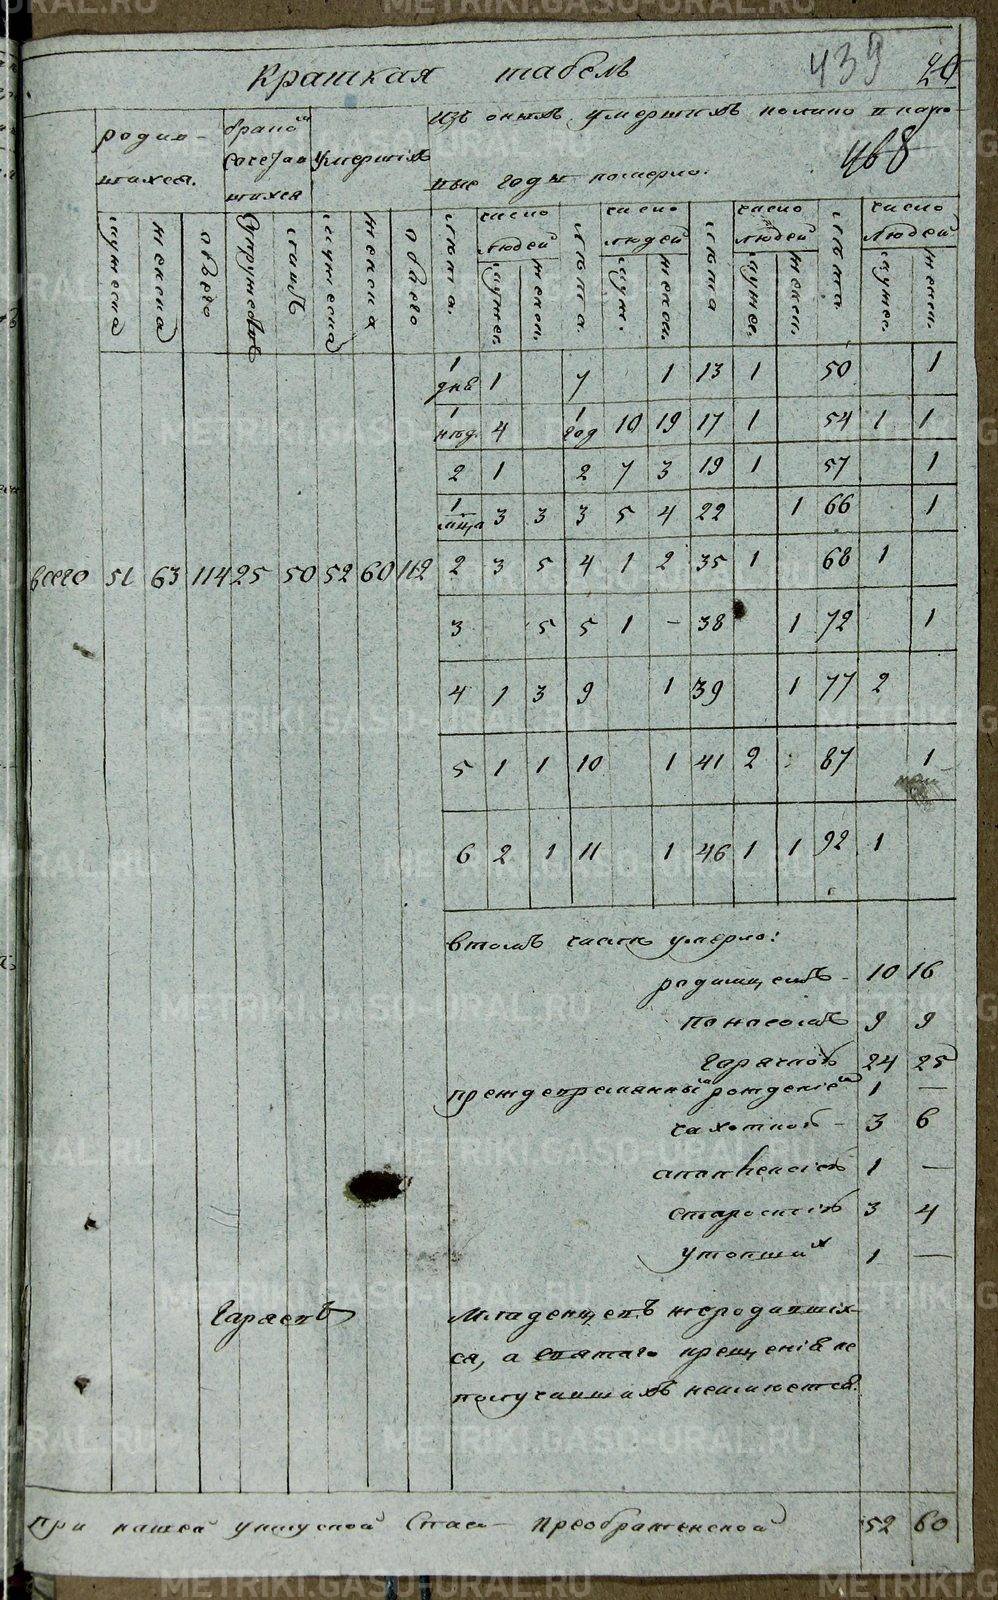 Краткая табель
439
20
468
родив-
шихся.
браком
сочетав
шихся
умерших
Изъ оныхъ умершихъ колико и в каро
вые годы померло.
мужеска
женска
обоего
Супружествъ
лицъ
мужеска
женска
обоего
лѣта.
число людей
мужес.
женск.
лѣта.
число людей
муж.
женск.
лѣта
число людей
мужес.
женск.
лѣта
число людей
мужес.
женск.
1 дня 1 7 1 13 1 50 1
1 нед. 4 1 год 10 19 17 1 54 1 1
2 1 2 7 3 19 1 57 1
1 мца 3 3 3 5 4 22 1 66 1
всего 51 63 114 25 50 52 60 112 2 3 5 4 1 2 35 1 68 1
3 - 5 5 1 - 38 1 72 1
4 1 3 9 1 39 1 77 2
5 1 1 10 1 41 2 87 1
6 2 1 11 1 46 1 1 92 1
в томъ числѣ умерло:
родимцемъ - 10 16
поносомъ 9 9
горячкою 24 25
преждевременным рожденіем 1 —
чахоткою - 3 6
1 —
старостію 3 4
утопших 1 —
Младенцевъ несродившихъ
ся, а святаго крещенія не
получившихъ неимеется.
При нашей уктусской Спасо-Преображенской 52 60
METRIKI.GASO-URAL.RU